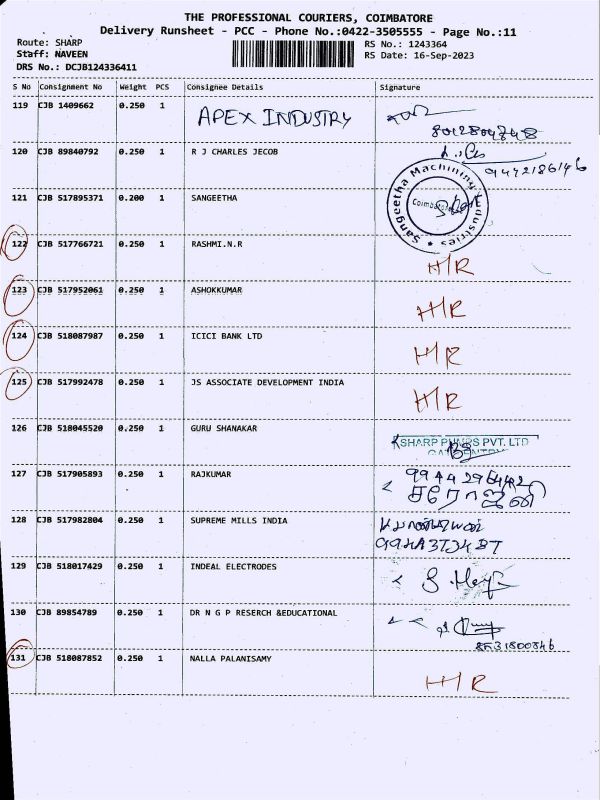 THE PROFESSIONAL COURIERS, COIMBATORE
Delivery Runsheet - PCC - Phone No.:0422-3505555 - Page No.:11
Route: SHARP
Staff: NAVEEN
DRS No.: DCJB124336411
RS No.: 1243364
RS Date: 16-Sep-2023
S No Consignment No Weight PCS Consignee Details Signature
119 CJB 1409662 0.250 1 APEX INDUSTRY
8012804848
120 CJB 89840792 0.250 1 R J CHARLES JECOB
9442186146
121 CJB 517895371 0.200 1 SANGEETHA
Sangeetha Machining Industries
Coimbatore
122 CJB 517766721 0.250 1 RASHMI.N.R
H/R
123 CJB 517952061 0.250 1 ASHOKKUMAR
H/R
124 CJB 518087987 0.250 1 ICICI BANK LTD
H/R
125 CJB 517992478 0.250 1 JS ASSOCIATE DEVELOPMENT INDIA
H/R
126 CJB 518045520 0.250 1 GURU SHANAKAR
SHARP PUMPS PVT. LTD
127 CJB 517905893 0.250 1 RAJKUMAR
9944296442
சரோஜினி
128 CJB 517982804 0.250 1 SUPREME MILLS INDIA
129 CJB 518017429 0.250 1 INDEAL ELECTRODES
130 CJB 89854789 0.250 1 DR N G P RESERCH &EDUCATIONAL
131 CJB 518087852 0.250 1 NALLA PALANISAMY
H/R